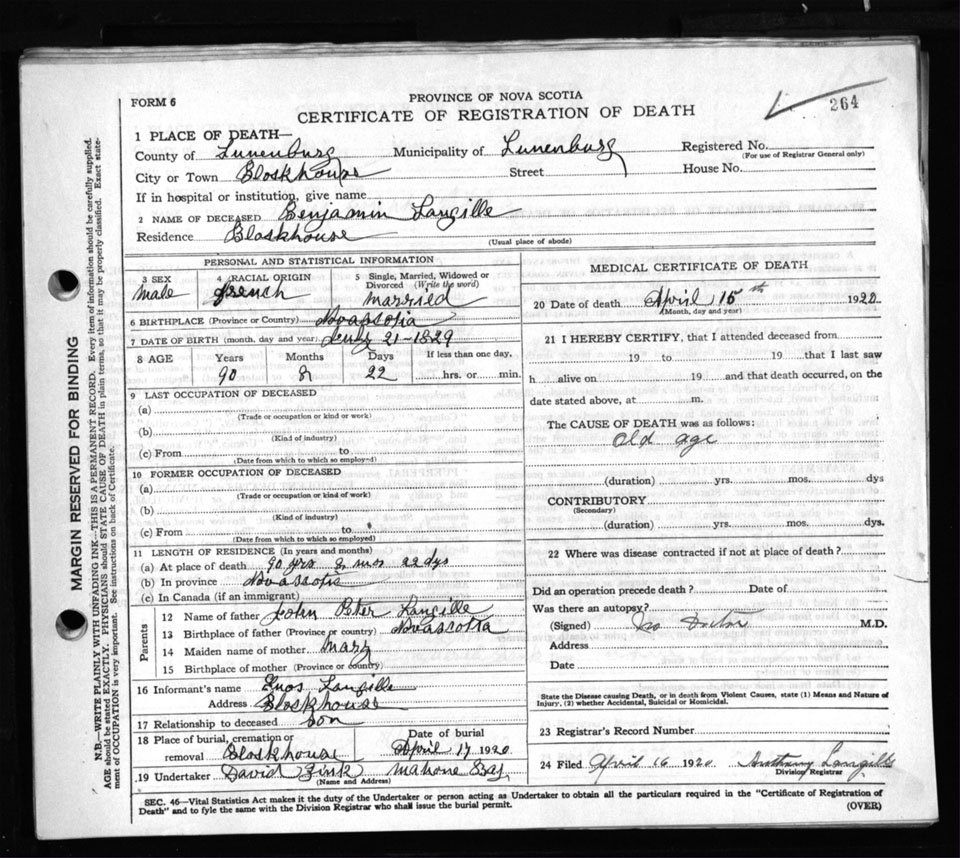 FORM 6
PROVINCE OF NOVA SCOTIA
CERTIFICATE OF REGISTRATION OF DEATH
264
1 PLACE OF DEATH—
County of Lunenburg Municipality of Lunenburg Registered No.
(For use of Registrar General only)
City or Town Blockhouse Street House No.
If in hospital or institution, give name
2 NAME OF DECEASED Benjamin Langille
Residence Blockhouse
(Usual place of abode)
PERSONAL AND STATISTICAL INFORMATION
3 SEX
male
4 RACIAL ORIGIN
french
5 Single, Married, Widowed or Divorced (Write the word)
married
6 BIRTHPLACE (Province or Country) Novascotia
7 DATE OF BIRTH (month, day and year) July 21-1829
8 AGE Years Months Days If less than one day,
90 8 22 hrs. or min.
9 LAST OCCUPATION OF DECEASED
(a)
(Trade or occupation or kind or work)
(b)
(Kind of industry)
(c) From to
(Date from which to which so employed)
10 FORMER OCCUPATION OF DECEASED
(a)
(Trade or occupation or kind of work)
(b)
(Kind of industry)
(c) From to
(Date from which to which so employed)
11 LENGTH OF RESIDENCE (In years and months)
(a) At place of death 90 yrs 8 mos 22 dys
(b) In province Novascotia
(c) In Canada (if an immigrant)
Parents
12 Name of father John Peter Langille
13 Birthplace of father (Province or country) Novascotia
14 Maiden name of mother Mary
15 Birthplace of mother (Province or country)
16 Informant's name Enos Langille
Address Blockhouse
17 Relationship to deceased Son
18 Place of burial, cremation or removal Blockhouse
Date of burial
April 17 1920
19 Undertaker David Zink Mahone Bay
(Name and Address)
MEDICAL CERTIFICATE OF DEATH
20 Date of death April 15th 1920
(Month, day and year)
21 I HEREBY CERTIFY, that I attended deceased from
19 to 19 that I last saw
h alive on 19 and that death occurred, on the
date stated above, at m.
The CAUSE OF DEATH was as follows:
Old age
(duration) yrs. mos. dys
CONTRIBUTORY
(Secondary)
(duration) yrs. mos. dys.
22 Where was disease contracted if not at place of death?
Did an operation precede death? Date of
Was there an autopsy?
(Signed) No Doctor M.D.
Address
Date
State the Disease causing Death, or in death from Violent Causes, state (1) Means and Nature of
Injury, (2) whether Accidental, Suicidal or Homicidal.
23 Registrar's Record Number
24 Filed April 16 1920 Anthony Langille
Division Registrar
SEC. 46—Vital Statistics Act makes it the duty of the Undertaker or person acting as Undertaker to obtain all the particulars required in the "Certificate of Registration of
Death" and to fyle the same with the Division Registrar who shall issue the burial permit.
(OVER)
MARGIN RESERVED FOR BINDING
N.B.—WRITE PLAINLY WITH UNFADING INK—THIS IS A PERMANENT RECORD. Every item of information should be carefully supplied.
AGE should be stated EXACTLY. PHYSICIANS should STATE CAUSE OF DEATH in plain terms, so that it may be properly classified. Exact state-
ment of OCCUPATION is very important. See instructions on back of Certificate.